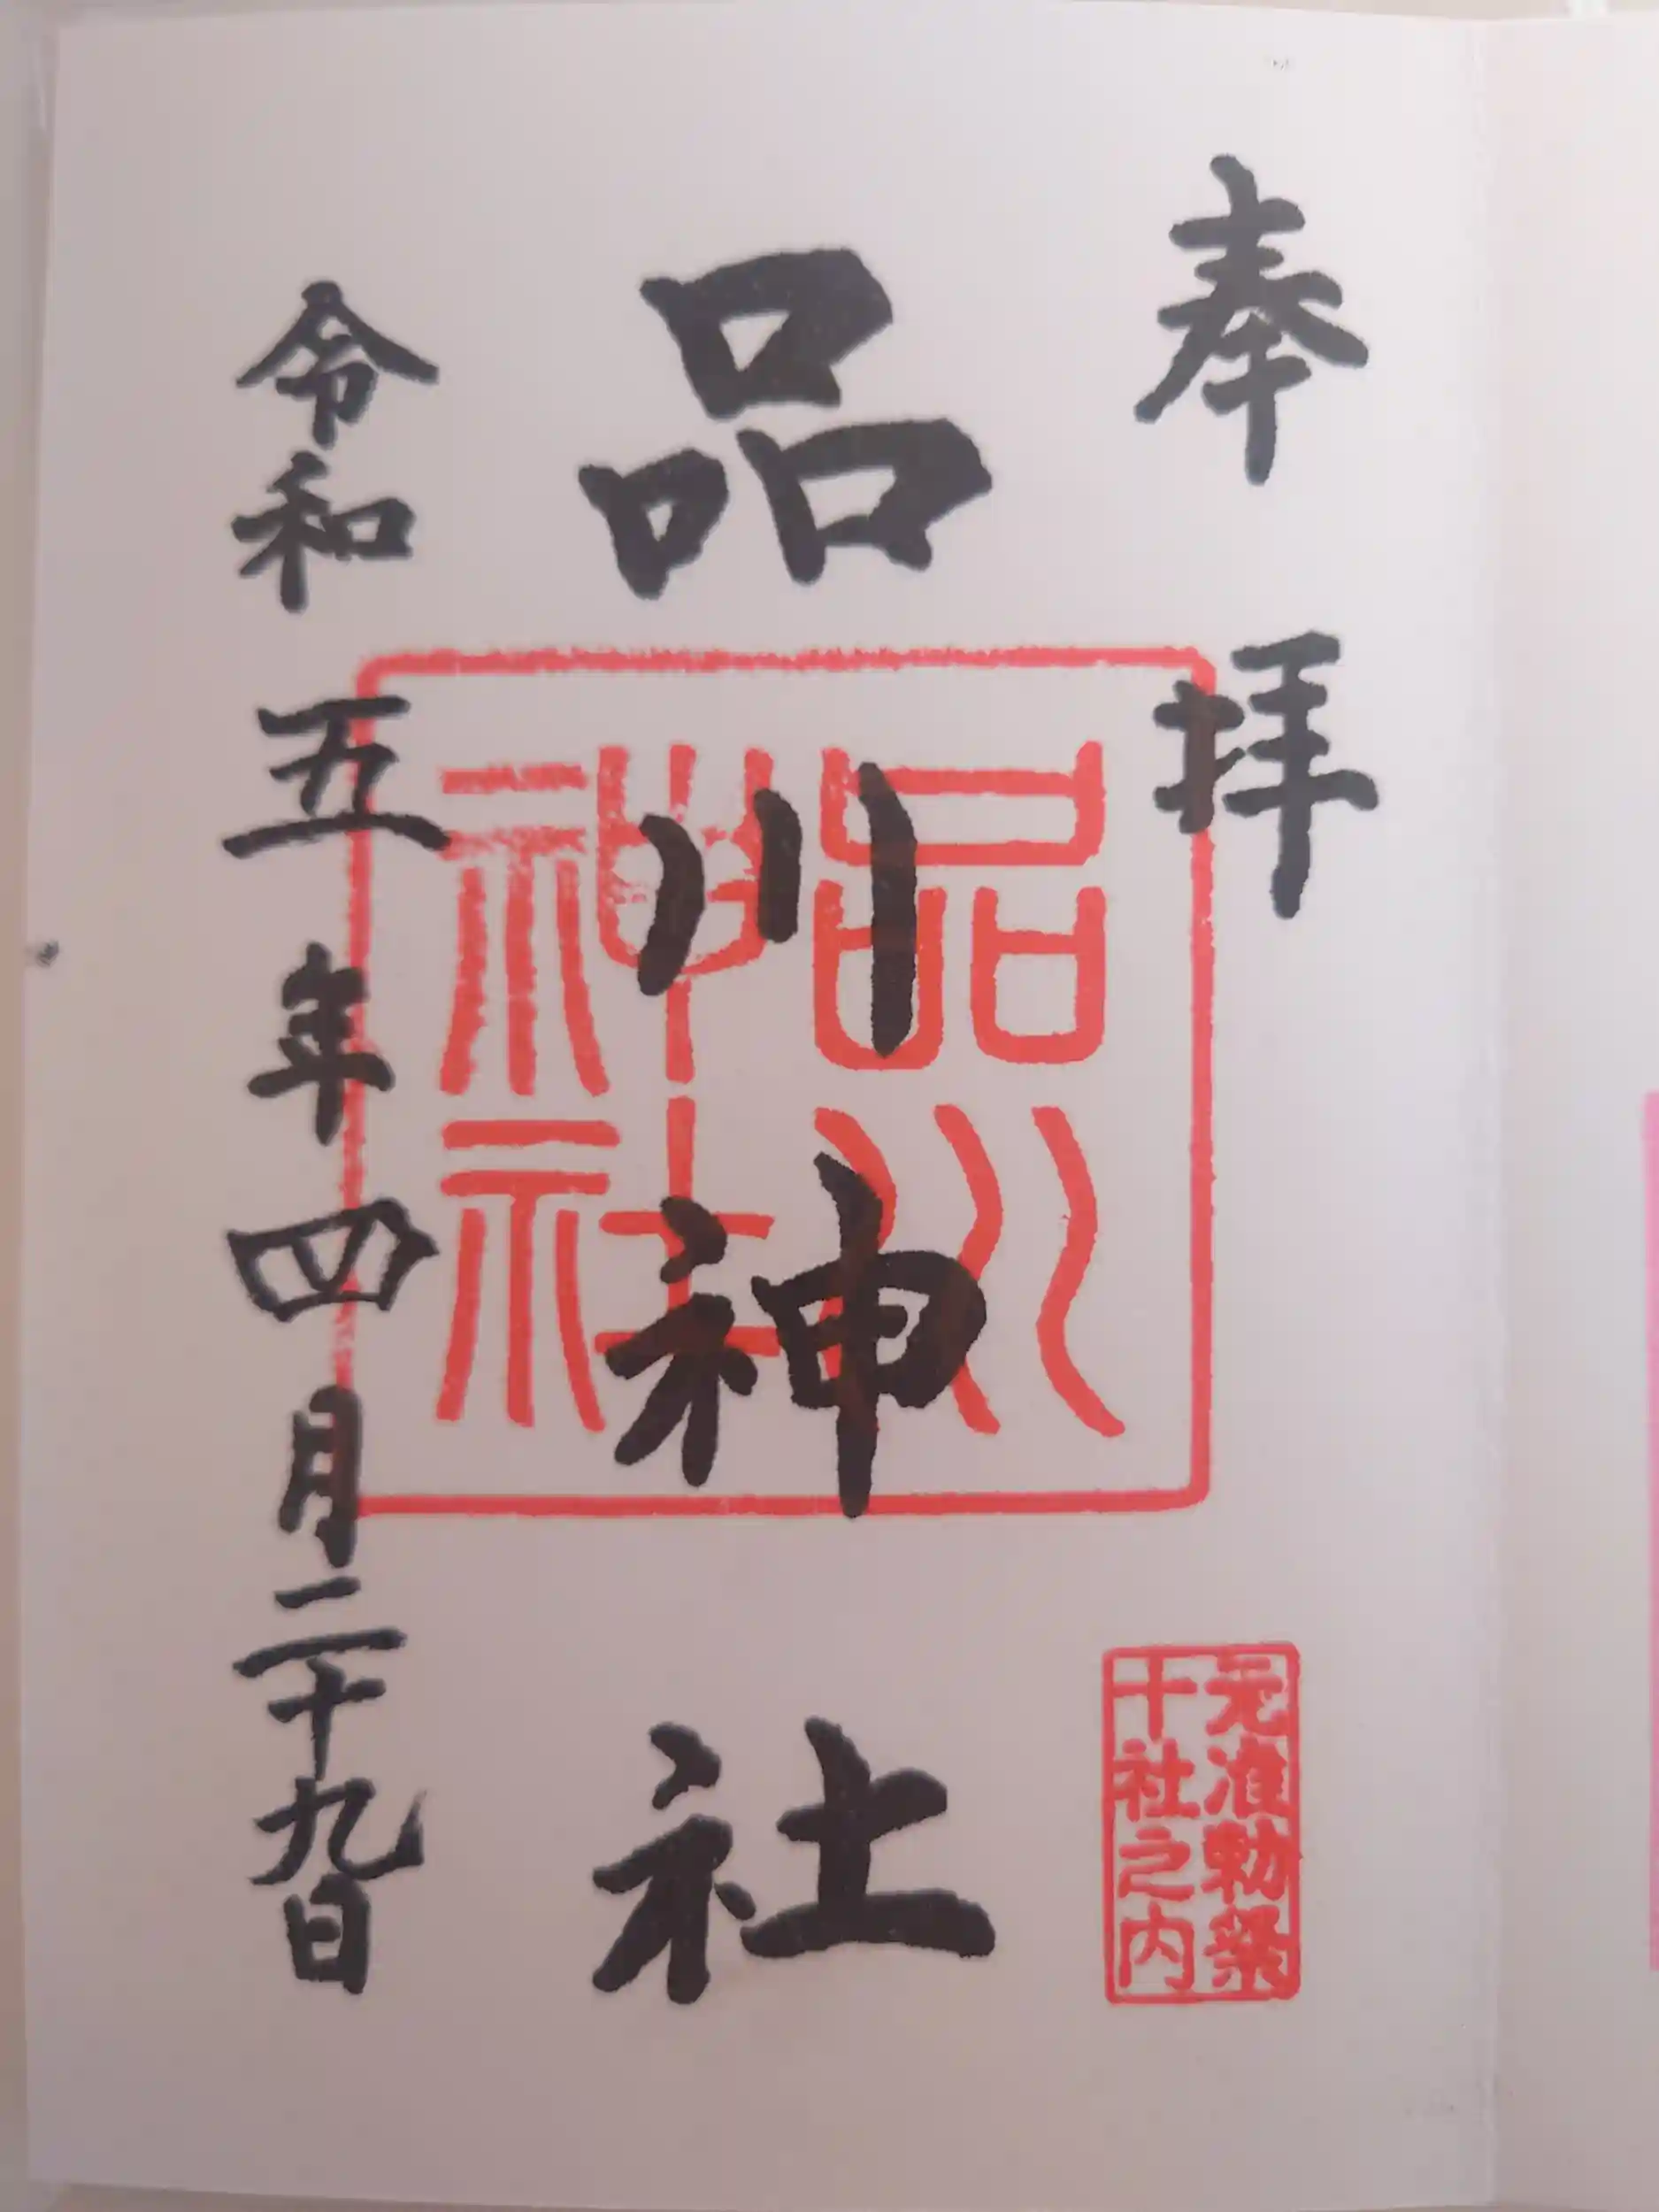 奉拝
元准勅祭
十社之内
品川神社
品川
神社
令和五年四月二十九日